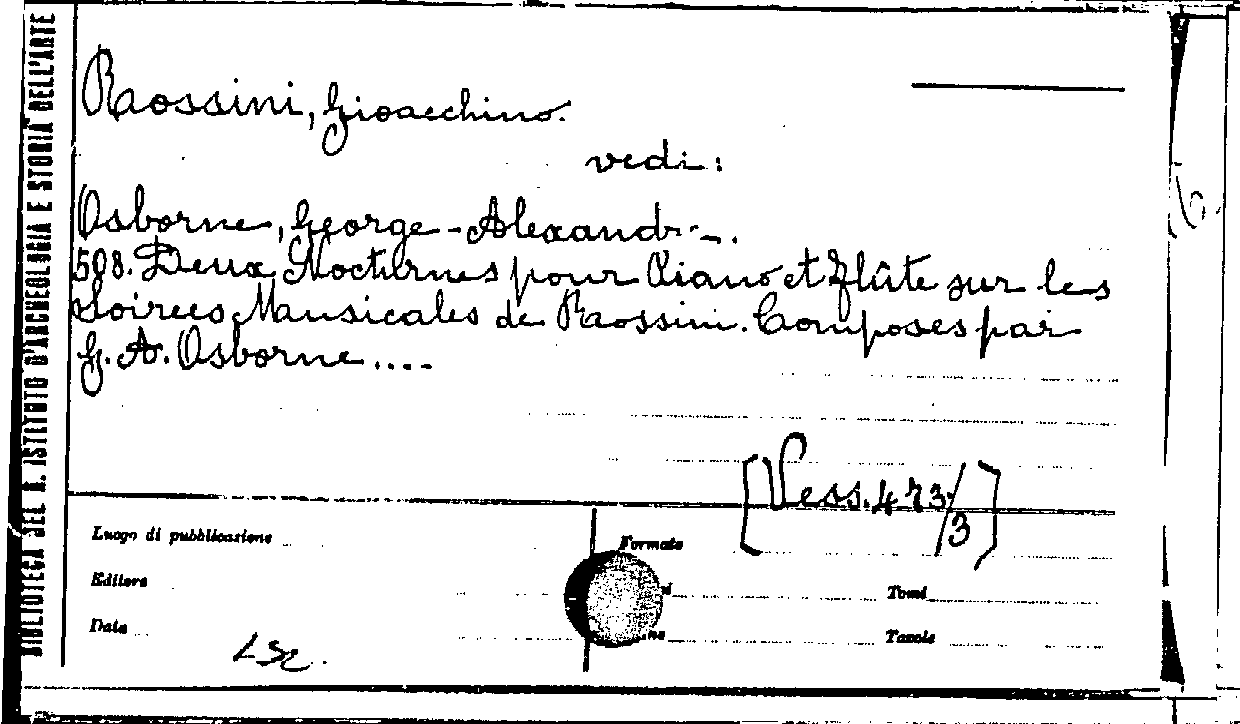 BIBLIOTECA DEL R. ISTITUTO D'ARCHEOLOGIA E STORIA DELL'ARTE
Rossini, Gioacchino.
vedi:
Osborne, George-Alexandr
508. Deux Nocturnes pour Piano et flûte sur les
Soirees Musicales de Rossini. Composes par
G. A. Osborne....
[Vess. 473/3]
Luogo di pubblicazione
Formato
Editore
Tomi
Data
Tavole